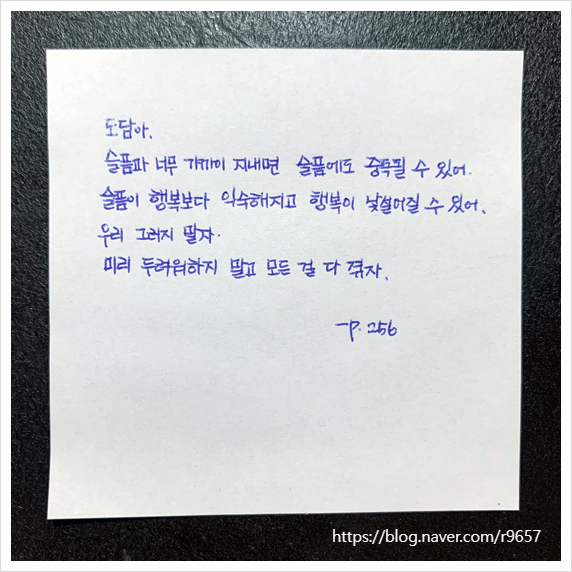 도담아.
슬픔과 너무 가까이 지내면 슬픔에도 중독될 수 있어.
슬픔이 행복보다 익숙해지고 행복이 낯설어질 수 있어.
우리 그러지 말자.
미리 두려워하지 말고 모든 걸 다 겪자.
-P. 256
https://blog.naver.com/r9657